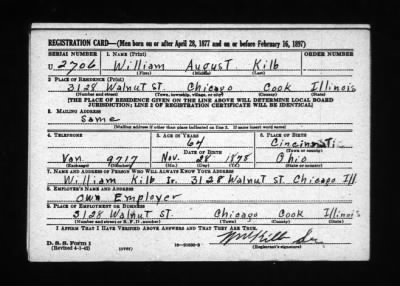 REGISTRATION CARD—(Men born on or after April 28, 1877 and on or before February 16, 1897)
SERIAL NUMBER 1. NAME (Print) ORDER NUMBER
U 2706 William August Kilb
(First) (Middle) (Last)
2. PLACE OF RESIDENCE (Print)
3128 Walnut St. Chicago Cook Illinois
(Number and street) (Town, township, village, or city) (County) (State)
[THE PLACE OF RESIDENCE GIVEN ON THE LINE ABOVE WILL DETERMINE LOCAL BOARD
JURISDICTION; LINE 2 OF REGISTRATION CERTIFICATE WILL BE IDENTICAL]
3. MAILING ADDRESS
Same
[Mailing address if other than place indicated on line 2. If same insert word same]
4. TELEPHONE 5. AGE IN YEARS 6. PLACE OF BIRTH
64 Cincinnati
DATE OF BIRTH (Town or county)
Van 9717 Nov. 28 1878 Ohio
(Exchange) (Number) (Mo.) (Day) (Yr.) (State or country)
7. NAME AND ADDRESS OF PERSON WHO WILL ALWAYS KNOW YOUR ADDRESS
William Kilb Jr. 3128 Walnut St. Chicago Ill
8. EMPLOYER'S NAME AND ADDRESS
Own Employer
9. PLACE OF EMPLOYMENT OR BUSINESS
3128 Walnut St. Chicago Cook Illinois
(Number and street or R. F. D. number) (Town) (County) (State)
I AFFIRM THAT I HAVE VERIFIED ABOVE ANSWERS AND THAT THEY ARE TRUE.
D. S. S. Form 1
(Revised 4-1-42) (over) Wm Kilb Sr.
(Registrant's signature)